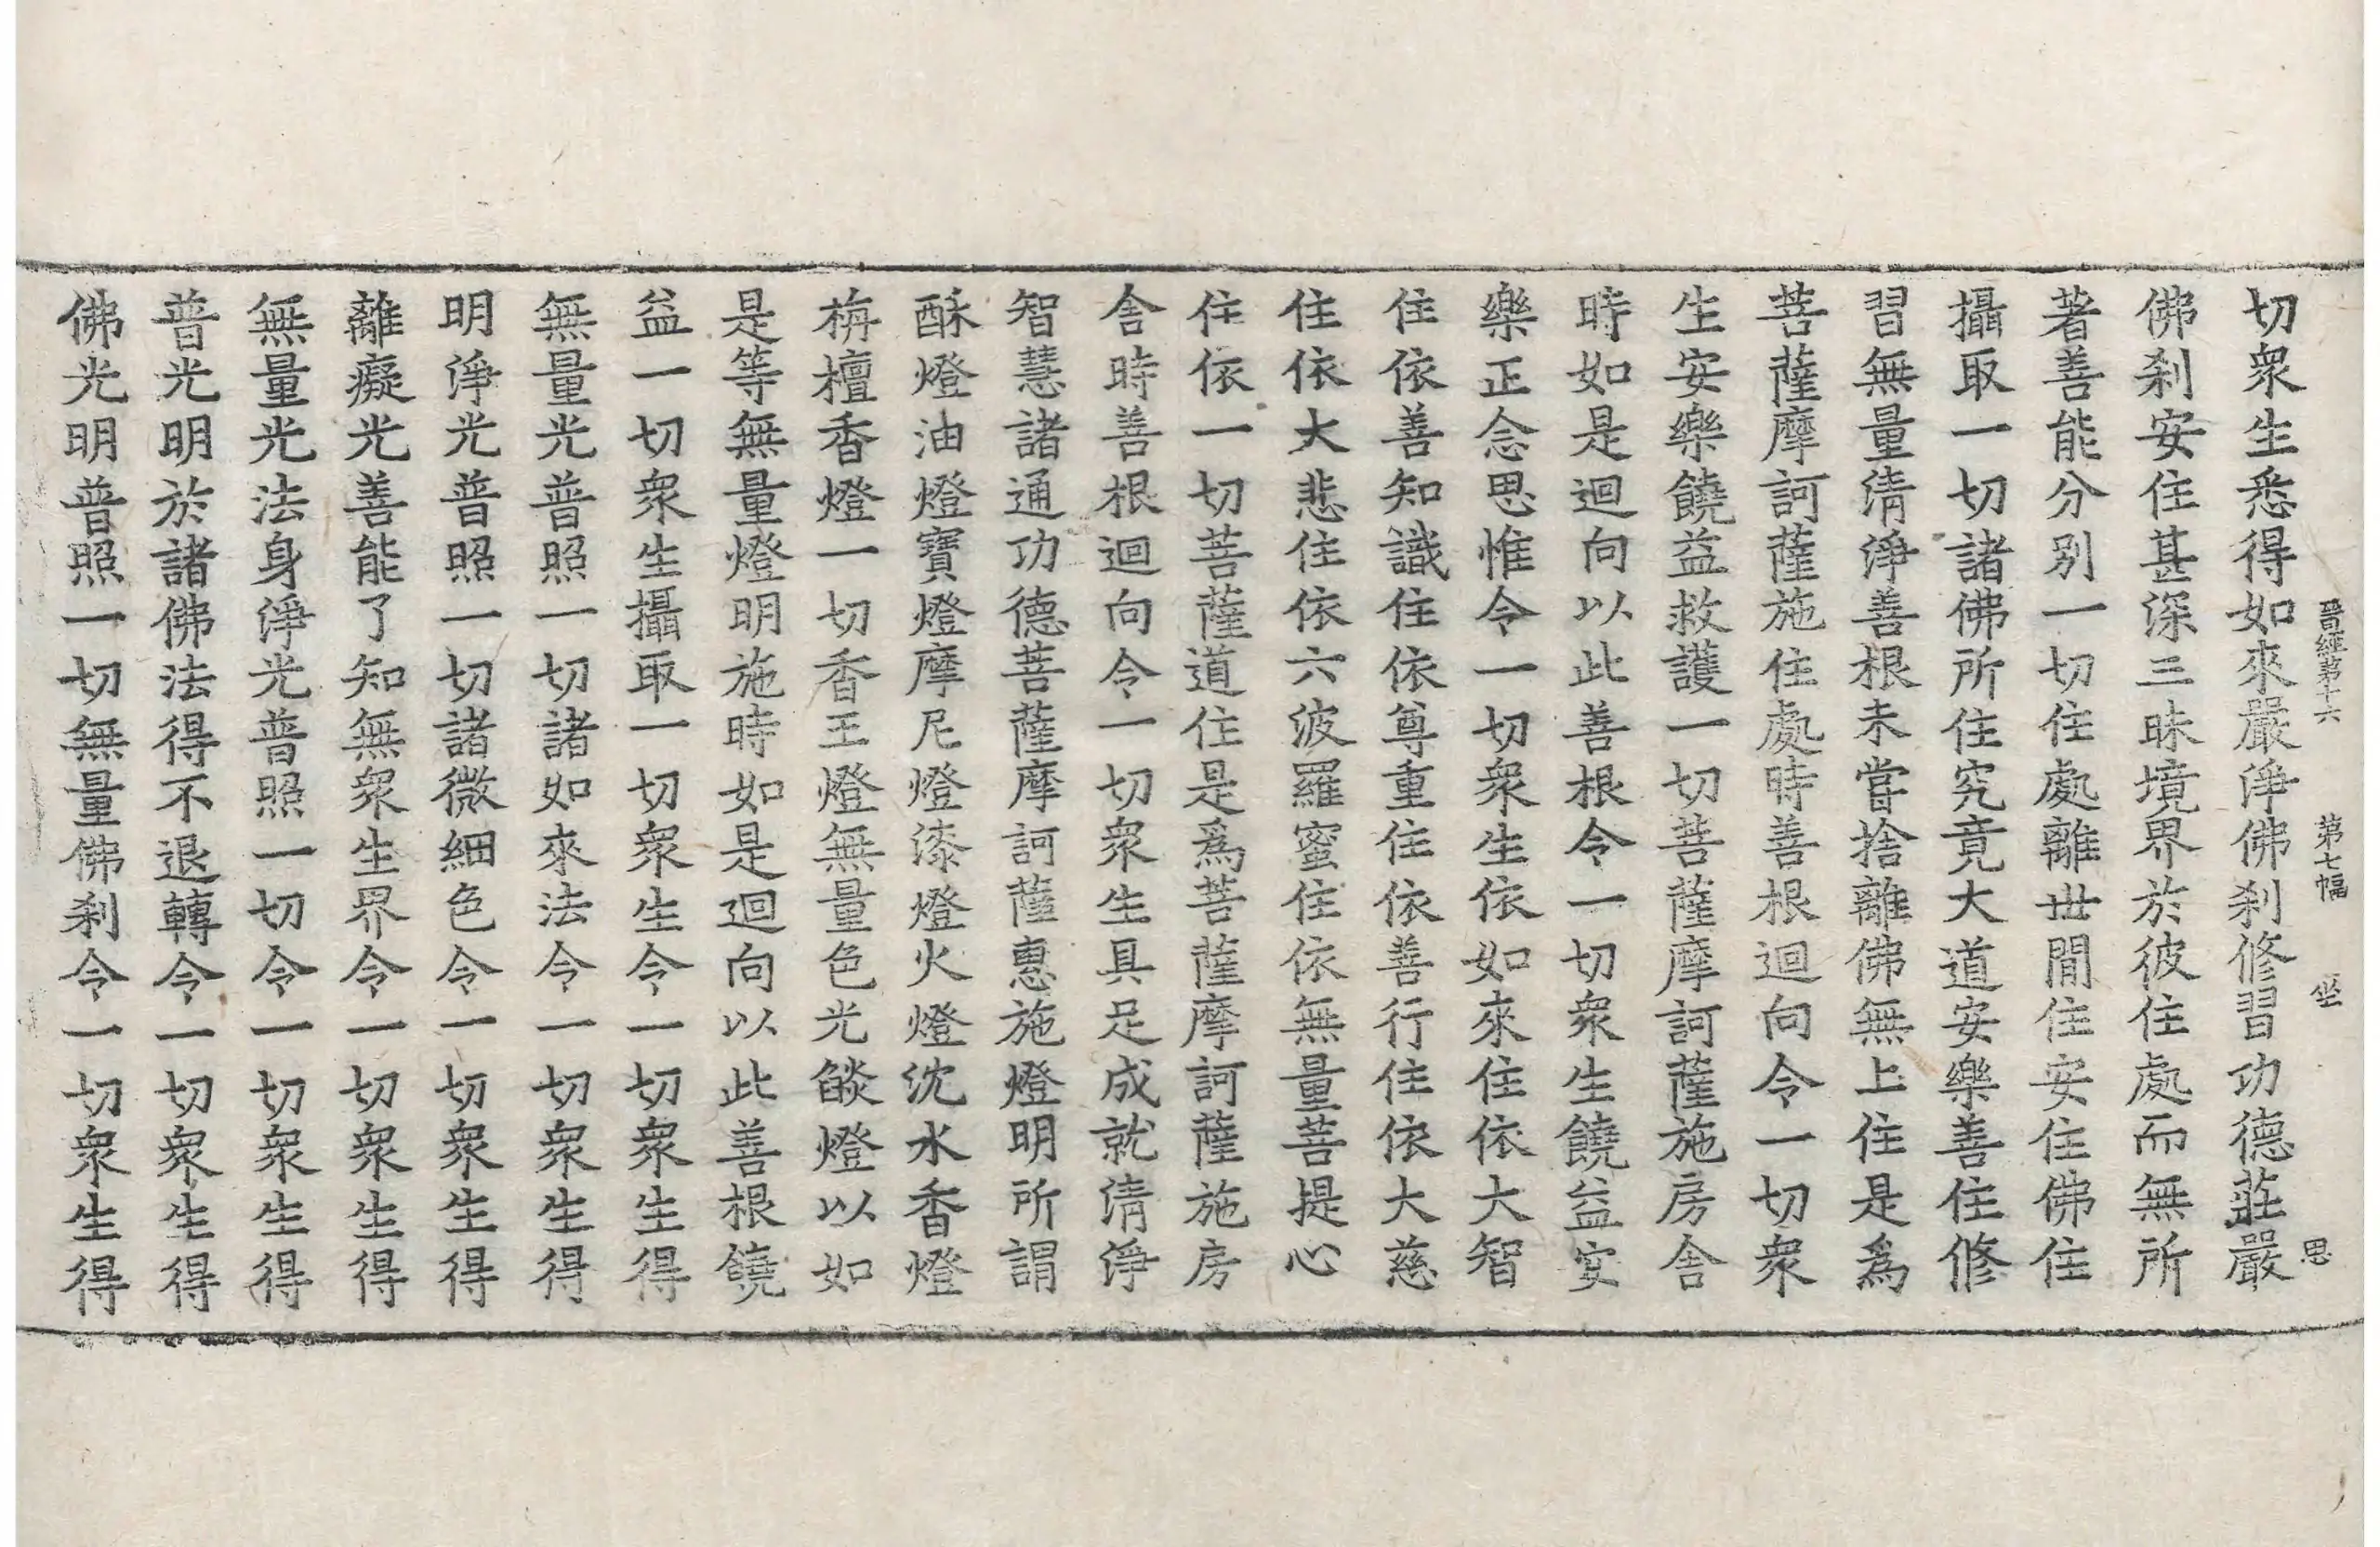 晉經第十六 第七幅 坐 思
切衆生悉得如來嚴淨佛刹修習功德莊嚴
佛刹安住甚深三昧境界於彼住處而無所
著善能分別一切住處離世間住安住佛住
攝取一切諸佛所住究竟大道安樂善住修
習無量清淨善根未嘗捨離佛無上住是爲
菩薩摩訶薩施住處時善根迴向令一切衆
生安樂饒益救護一切菩薩摩訶薩施房舎
時如是迴向以此善根令一切衆生饒益安
樂正念思惟令一切衆生依如來住依大智
住依善知識住依尊重住依善行住依大慈
住依大悲住依六波羅蜜住依無量菩提心
住依一切菩薩道住是爲菩薩摩訶薩施房
舎時善根迴向令一切衆生具足成就清淨
智慧諸通功德菩薩摩訶薩惠施燈明所謂
酥燈油燈寶燈摩尼燈漆燈火燈沈水香燈
栴檀香燈一切香王燈無量色光燄燈以如
是等無量燈明施時如是迴向以此善根饒
益一切衆生攝取一切衆生令一切衆生得
無量光普照一切諸如來法令一切衆生得
明淨光普照一切諸微細色令一切衆生得
離癡光善能了知無衆生界令一切衆生得
無量光法身淨光普照一切令一切衆生得
普光明於諸佛法得不退轉令一切衆生得
佛光明普照一切無量佛刹令一切衆生得